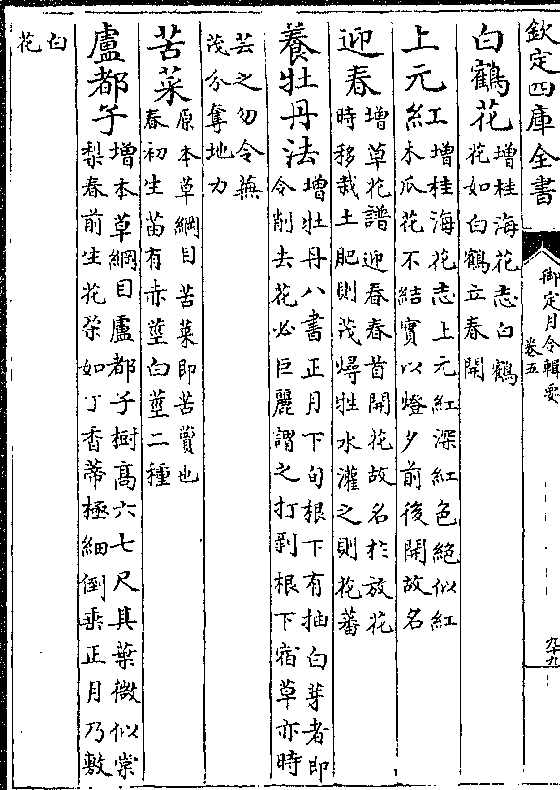 欽定四庫全書
御定月令輯要
卷五
九十九
白鶴花 增桂海花志白鶴
花如白鶴立春開
上元紅 增桂海花志上元紅深紅色絕似紅
木瓜花不結實以燈夕前後開故名
迎春 增草花譜迎春春首開花故名於放花
時移栽土肥則茂燖牲水灌之則花蕃
養牡丹法 增牡丹八書正月下旬根下有抽白芽者即
令削去花必巨麗謂之打剥根下宿草亦時
芸之勿令蕪
茂分奪地力
苦菜 原本草綱目苦菜即苦蕒也
春初生苗有赤莖白莖二種
盧都子 增本草綱目盧都子樹高六七尺其葉微似棠
梨春前生花朶如丁香蒂極細倒垂正月乃敷
白
花